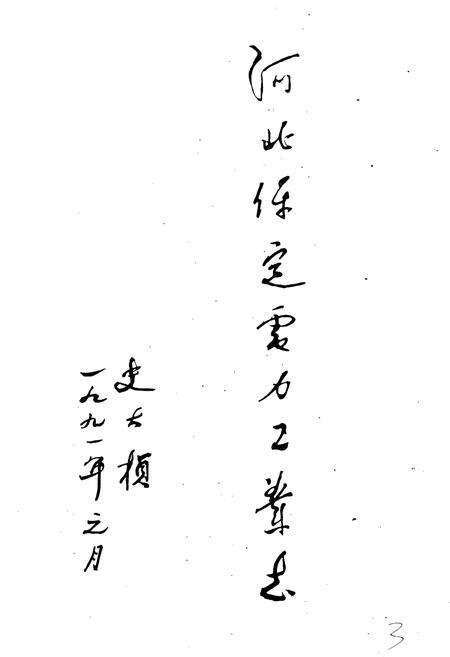 河北保定電力工業志
史大楨
一九九一年元月
3